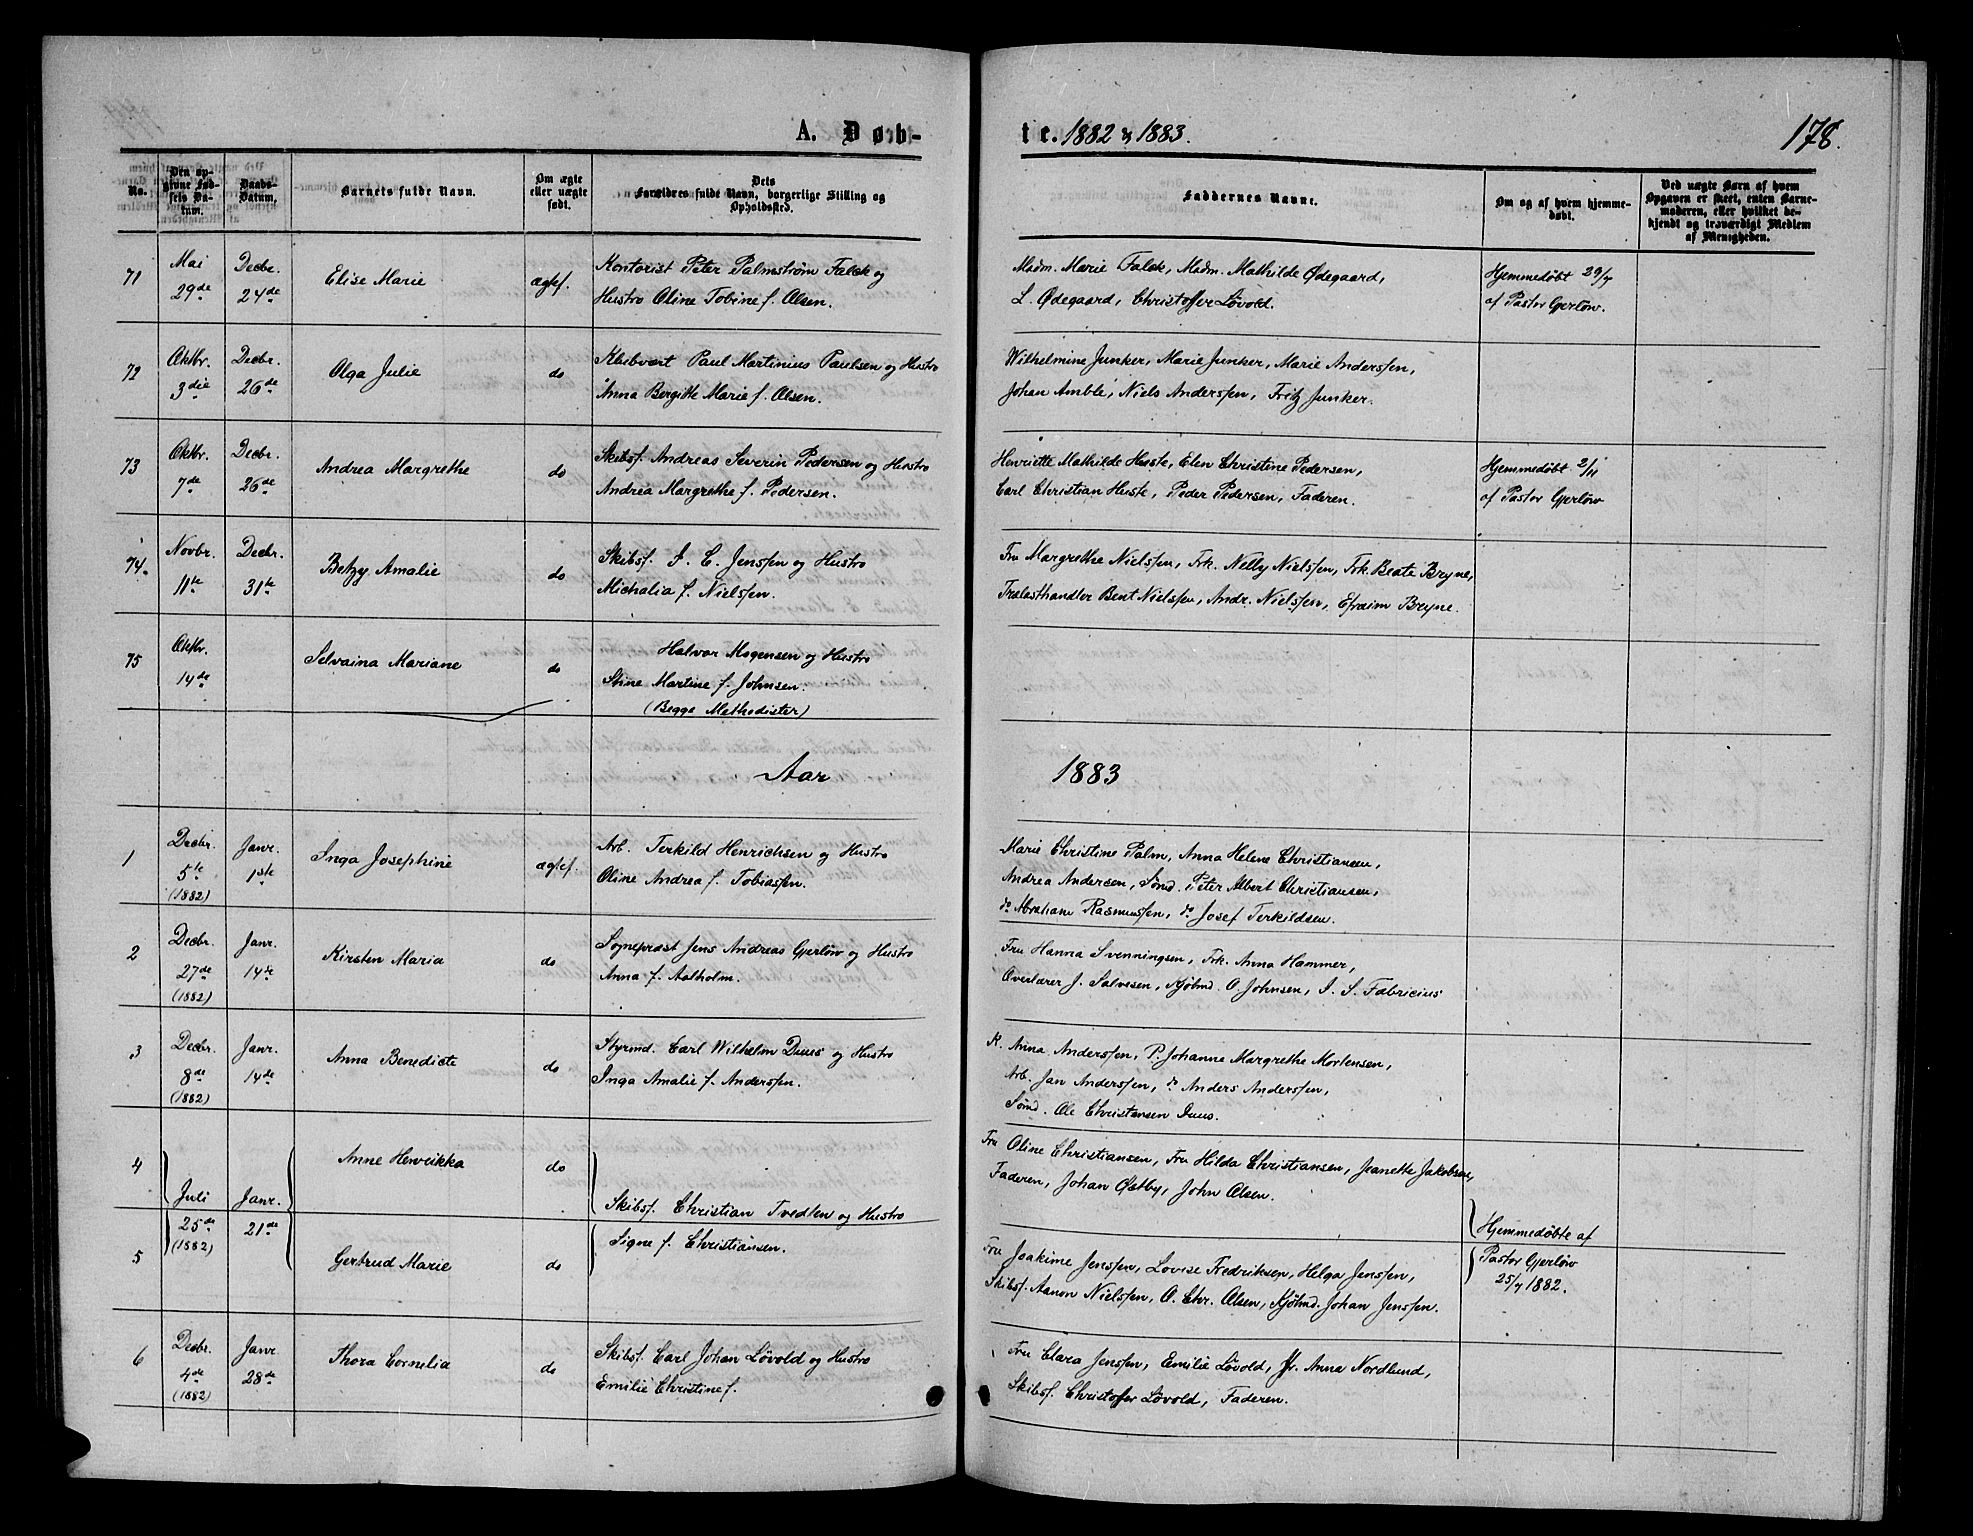 A. Døb-
te. 1882 & 1883.
178.
No.
Den op-
givne Fød-
sels Da-
tum.
Daabs-
Datum.
Barnets fulde Navn.
Om ægte
eller uægte
født.
Dets
Forældres fulde Navn, borgerlige Stilling og
Opholdssted.
Faddernes Navne.
Om og af hvem hjemme-
døbt.
Ved uægte Børn af hvem
Opgaven er skeet, enten Barne-
moderen, eller hvilket be-
kjendt og troværdigt Medlem
af Menigheden.
71
Mai
29de
Decbr.
24de
Elise Marie
ægtef.
Kontorist Peter Palmstrøm Falck og
Hustro Oline Tobine f. Olsen.
Madm. Marie Falck, Madm. Mathilde Ødegaard,
L. Ødegaard, Christoffer Løvold.
Hjemmedøbt 29/7
af Pastor Gjerløw.
72
Oktbr.
3die
Decbr.
26de
Olga Julie
do
Paul Martinius Paulsen og Hustro
Anna Bergitte Marie f. Olsen.
Wilhelmine Junker, Marie Junker, Marie Anderssen,
Johan Amble, Niels Anderssen, Fritz Junker.
73
Oktbr.
7de
Decbr.
26de
Andrea Margrethe
do
Skibsf. Andreas Severin Pedersen og Hustro
Andrea Margrethe f. Pedersen.
Henriette Mathilde Huste, Elen Christine Pedersen,
Carl Christian Huste, Peder Pedersen, Faderen.
Hjemmedøbt 2/11
af Pastor Gjerløw
74.
Novbr.
11te
Decbr.
31te
Betzy Amalie
do
Skibsf. I. C. Jenssen og Hustro
Michalia f. Nielssen.
Fru Margrethe Nielssen, Frk. Nelly Nielssen, Frk. Beate Bryne,
Trælasthandler Bent Nielssen, Andr. Nielssen, Efraim Bryne.
75
Oktbr.
14de
Selvaina Mariane
do
Halvor Mogensen og Hustro
Stine Martine f. Johnsen.
(Begge Methodister)
Aar
1883
1
Decbr.
5te
(1882)
Janr.
1ste
Inga Josephine
ægtef.
Arb. Terkild Henrichsen og Hustro
Oline Andrea f. Tobiassen.
Marie Christine Palm, Anna Helene Christiansen,
Andrea Andersen, Sømd. Peter Albert Christiansen,
do Abraham Rasmussen, do Josef Terkildsen.
2
Decbr.
27de
(1882)
Janr.
14de
Kirsten Maria
do
Sognepræst Jens Andreas Gjerløw og Hustro
Anna f. Aalholm.
Fru Hanna Svenningsen, Frk. Anna Hammer,
Overlærer J. Salvesen, Kjøbmd. O. Johnsen, I. S. Fabricius
3
Decbr.
8de
(1882)
Janr.
14de
Anna Benedicte
do
Styrmd. Carl Wilhelm Duus og Hustro
Inga Amalie f. Anderssen.
K. Anna Anderssen, P. Johanne Margrethe Mortensen,
Arb. Jan Anderssen, do Anders Anderssen,
Sømd. Ole Christensen Duus.
4
Juli
25de
(1882)
Janr.
21de
Anne Henrikka
do
Skibsf. Christian Tvedten og Hustro
Signe f. Christiansen.
Fru Oline Christiansen, Fru Hilda Christiansen, Jeanette Jakobsen,
Faderen, Johan Østby, John Olsen.
5
Gertrud Marie
do
Fru Joakime Jenssen, Lovise Fredriksen, Helga Jenssen,
Skibsf. Aanon Nielssen, O. Chr. Olsen, Kjøbmd. Johan Jenssen.
Hjemmedøbte af
Pastor Gjerløw
25/7 1882.
6
Decbr.
4de
(1882)
Janr.
28de
Thora Cornelia
do
Skibsf. Carl Johan Løvold og Hustro
Emilie Christine f.
Fru Clara Jenssen, Emilie Løvold, Jfr. Anna Nordlund,
Skibsf. Christoffer Løvold, Faderen.